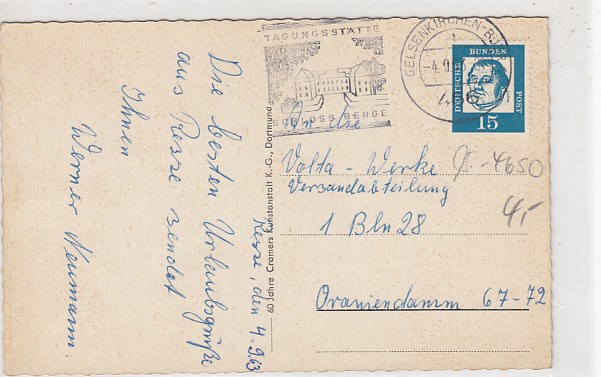 Resse, den 4.9.63
Die besten Urlaubsgrüße
aus Resse sendet
Ihnen
Werner Neumann.
60 Jahre Cramers Kunstanstalt K.-G., Dortmund
TAGUNGSSTÄTTE
SCHLOSS BERGE
GELSENKIRCHEN-BU
-4.9.63
DEUTSCHE
BUNDES
POST
15
An die
Volta-Werke
Versandabteilung
1 Bln 28
Oraniendamm 67-72
-4650
4,-